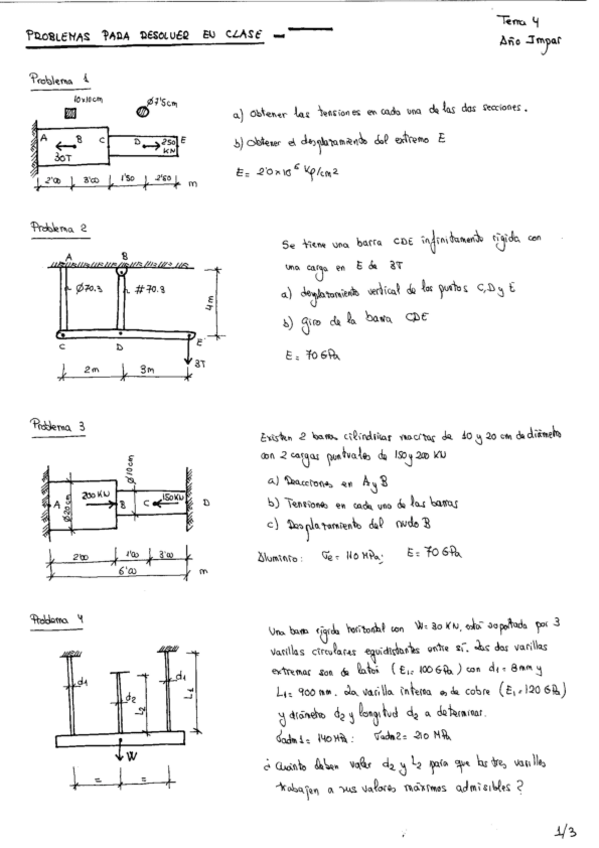 Tema 4
PROBLEMAS PARA RESOLVER EN CLASE
Año Impar
Problema 1
10x10cm
Ø7'5cm
A
B
C
D
E
30T
250
KN
2'00
3'00
1'50
2'50
m
a) Obtener las tensiones en cada una de las dos secciones.
b) Obtener el desplazamiento del extremo E
E = 2'0×10⁶ Kp/cm2
Problema 2
A
B
Ø70.3
#70.3
4m
C
D
E
3T
2m
3m
Se tiene una barra CDE infinitamente rígida con
una carga en E de 3T
a) desplazamiento vertical de los puntos C, D y E
b) giro de la barra CDE
E = 70 GPa
Problema 3
Ø20cm
Ø10cm
A
200KN
B
C
150KN
D
2'00
1'00
3'00
6'00
m
Existen 2 barras cilíndricas macizas de 10 y 20 cm de diámetro
con 2 cargas puntuales de 150 y 200 KN
a) Reacciones en A y B
b) Tensiones en cada una de las barras
c) Desplazamiento del nudo B
Aluminio: σe = 110 MPa; E = 70 GPa
Problema 4
d1
d2
L2
d1
L1
W
=
=
Una barra rígida horizontal con W = 30 KN, está soportada por 3
varillas circulares equidistantes entre sí. Las dos varillas
extremas son de latón (E1 = 100 GPa) con d1 = 8mm y
L1 = 900 mm. La varilla interna es de cobre (E1 = 120 GPa)
y diámetro d2 y longitud d2 a determinar.
σadm1 = 140 MPa; σadm2 = 210 MPa
¿Cuánto deben valer d2 y L2 para que las tres varillas
trabajen a sus valores máximos admisibles?
1/3